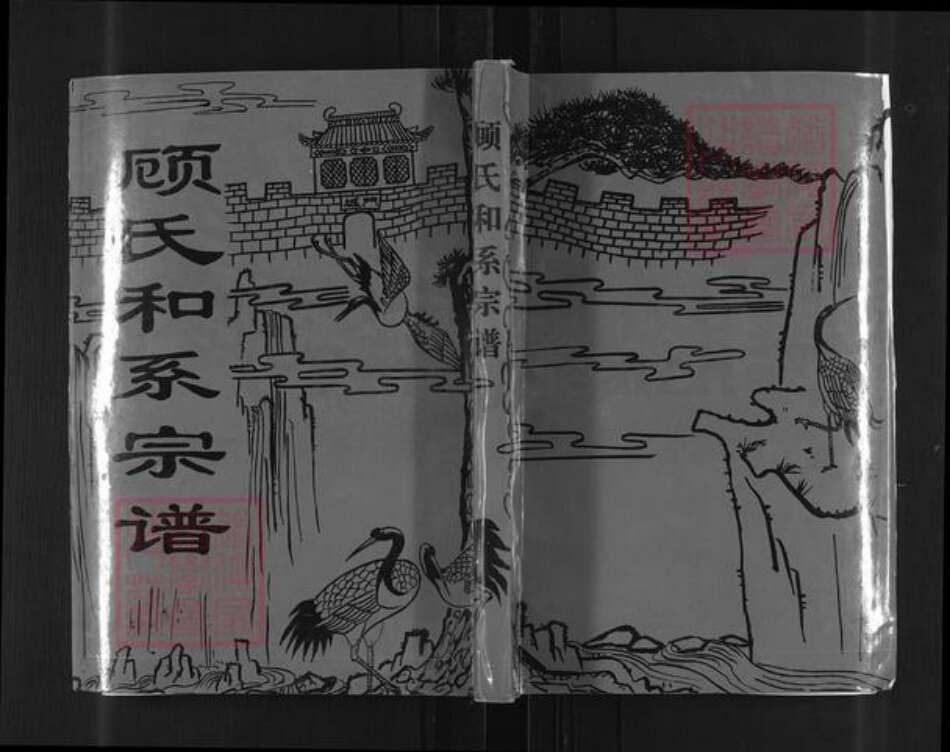 顾氏和系宗谱
顾氏和系宗谱